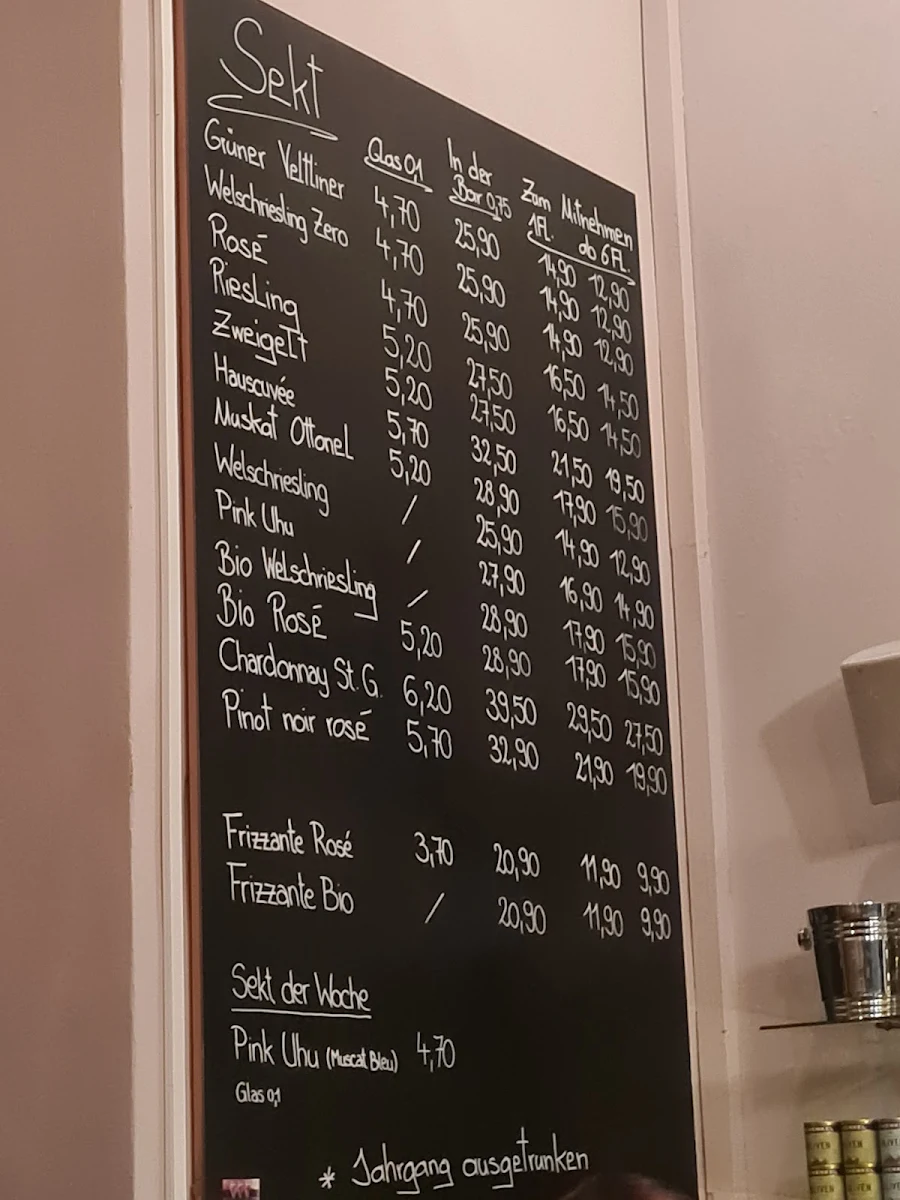 Sekt
Glas 0,1 In der Bar 0,75 Zum Mitnehmen 1Fl. ab 6 Fl.
Grüner Veltliner 4,70 25,90 14,90 12,90
Welschriesling Zero 4,70 25,90 14,90 12,90
Rosé 4,70 25,90 14,90 12,90
Riesling 5,20 27,50 16,50 14,50
Zweigelt 5,20 27,50 16,50 14,50
Hauscuvée 5,70 32,50 21,50 19,50
Muskat Ottonel 5,20 28,90 17,90 15,90
Welschriesling / 25,90 14,90 12,90
Pink Uhu / 27,90 16,90 14,90
Bio Welschriesling / 28,90 17,90 15,90
Bio Rosé 5,20 28,90 17,90 15,90
Chardonnay St. G. 6,20 39,50 29,50 27,50
Pinot noir rosé 5,70 32,90 21,90 19,90
Frizzante Rosé 3,70 20,90 11,90 9,90
Frizzante Bio / 20,90 11,90 9,90
Sekt der Woche
Pink Uhu (Muscat Bleu) 4,70
Glas 0,1
* Jahrgang ausgetrunken